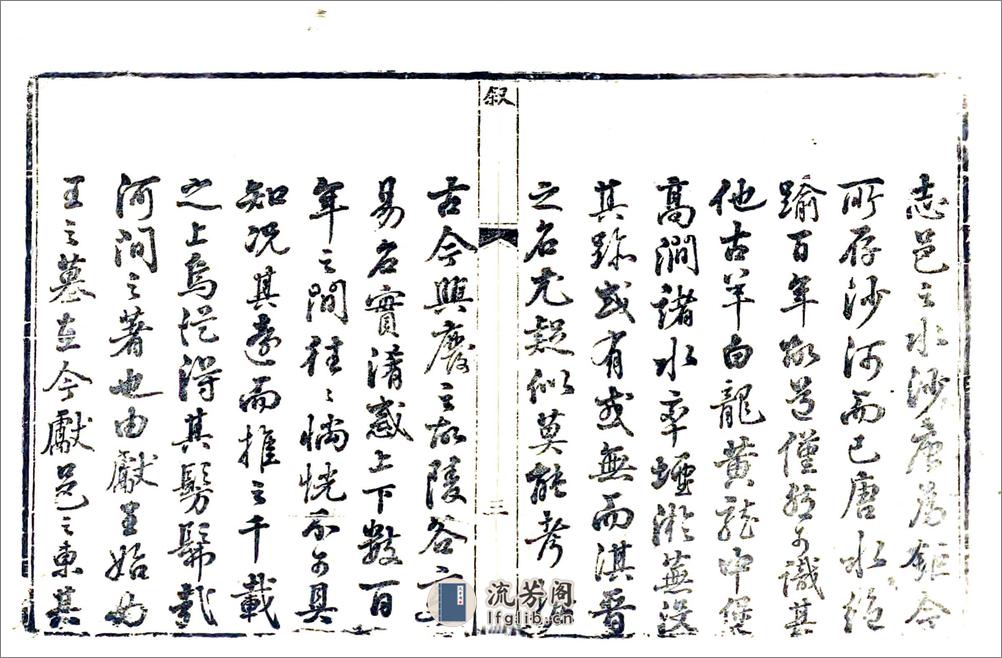 志邑之水沙唐为鉅今
所存沙河而已唐水絶
踰百年故道僅始可識其
他古羊白龍黄龍中堡
高澗諸水率堙淤蕪没
其跡或有或無而淇晉
之名尤疑似莫能考
叙
三
古今興廢之故陵谷之
易名實淆惑上下數百
年之間往々惝恍不可具
知况其遠而推之千載
之上烏從得其髣髴哉
河間之著也由獻王始而
王之墓在今獻邑之東其
流芳阁
lfglib.cn